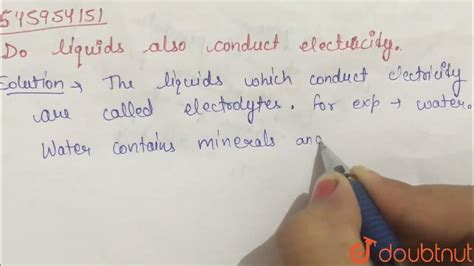 545954151
Do liquids also conduct electricity.
Solution → The liquids which conduct electricity
are called electrolytes. for exp → water.
Water contains minerals and
doubtnut